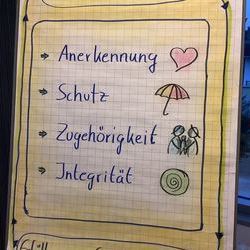 ⇒ Anerkennung
⇒ Schutz
⇒ Zugehörigkeit
⇒ Integrität